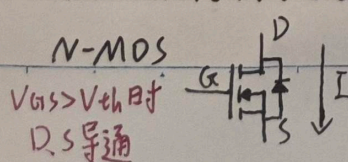 N-MOS
VGS>Vth时
D、S导通
D
G
S
I